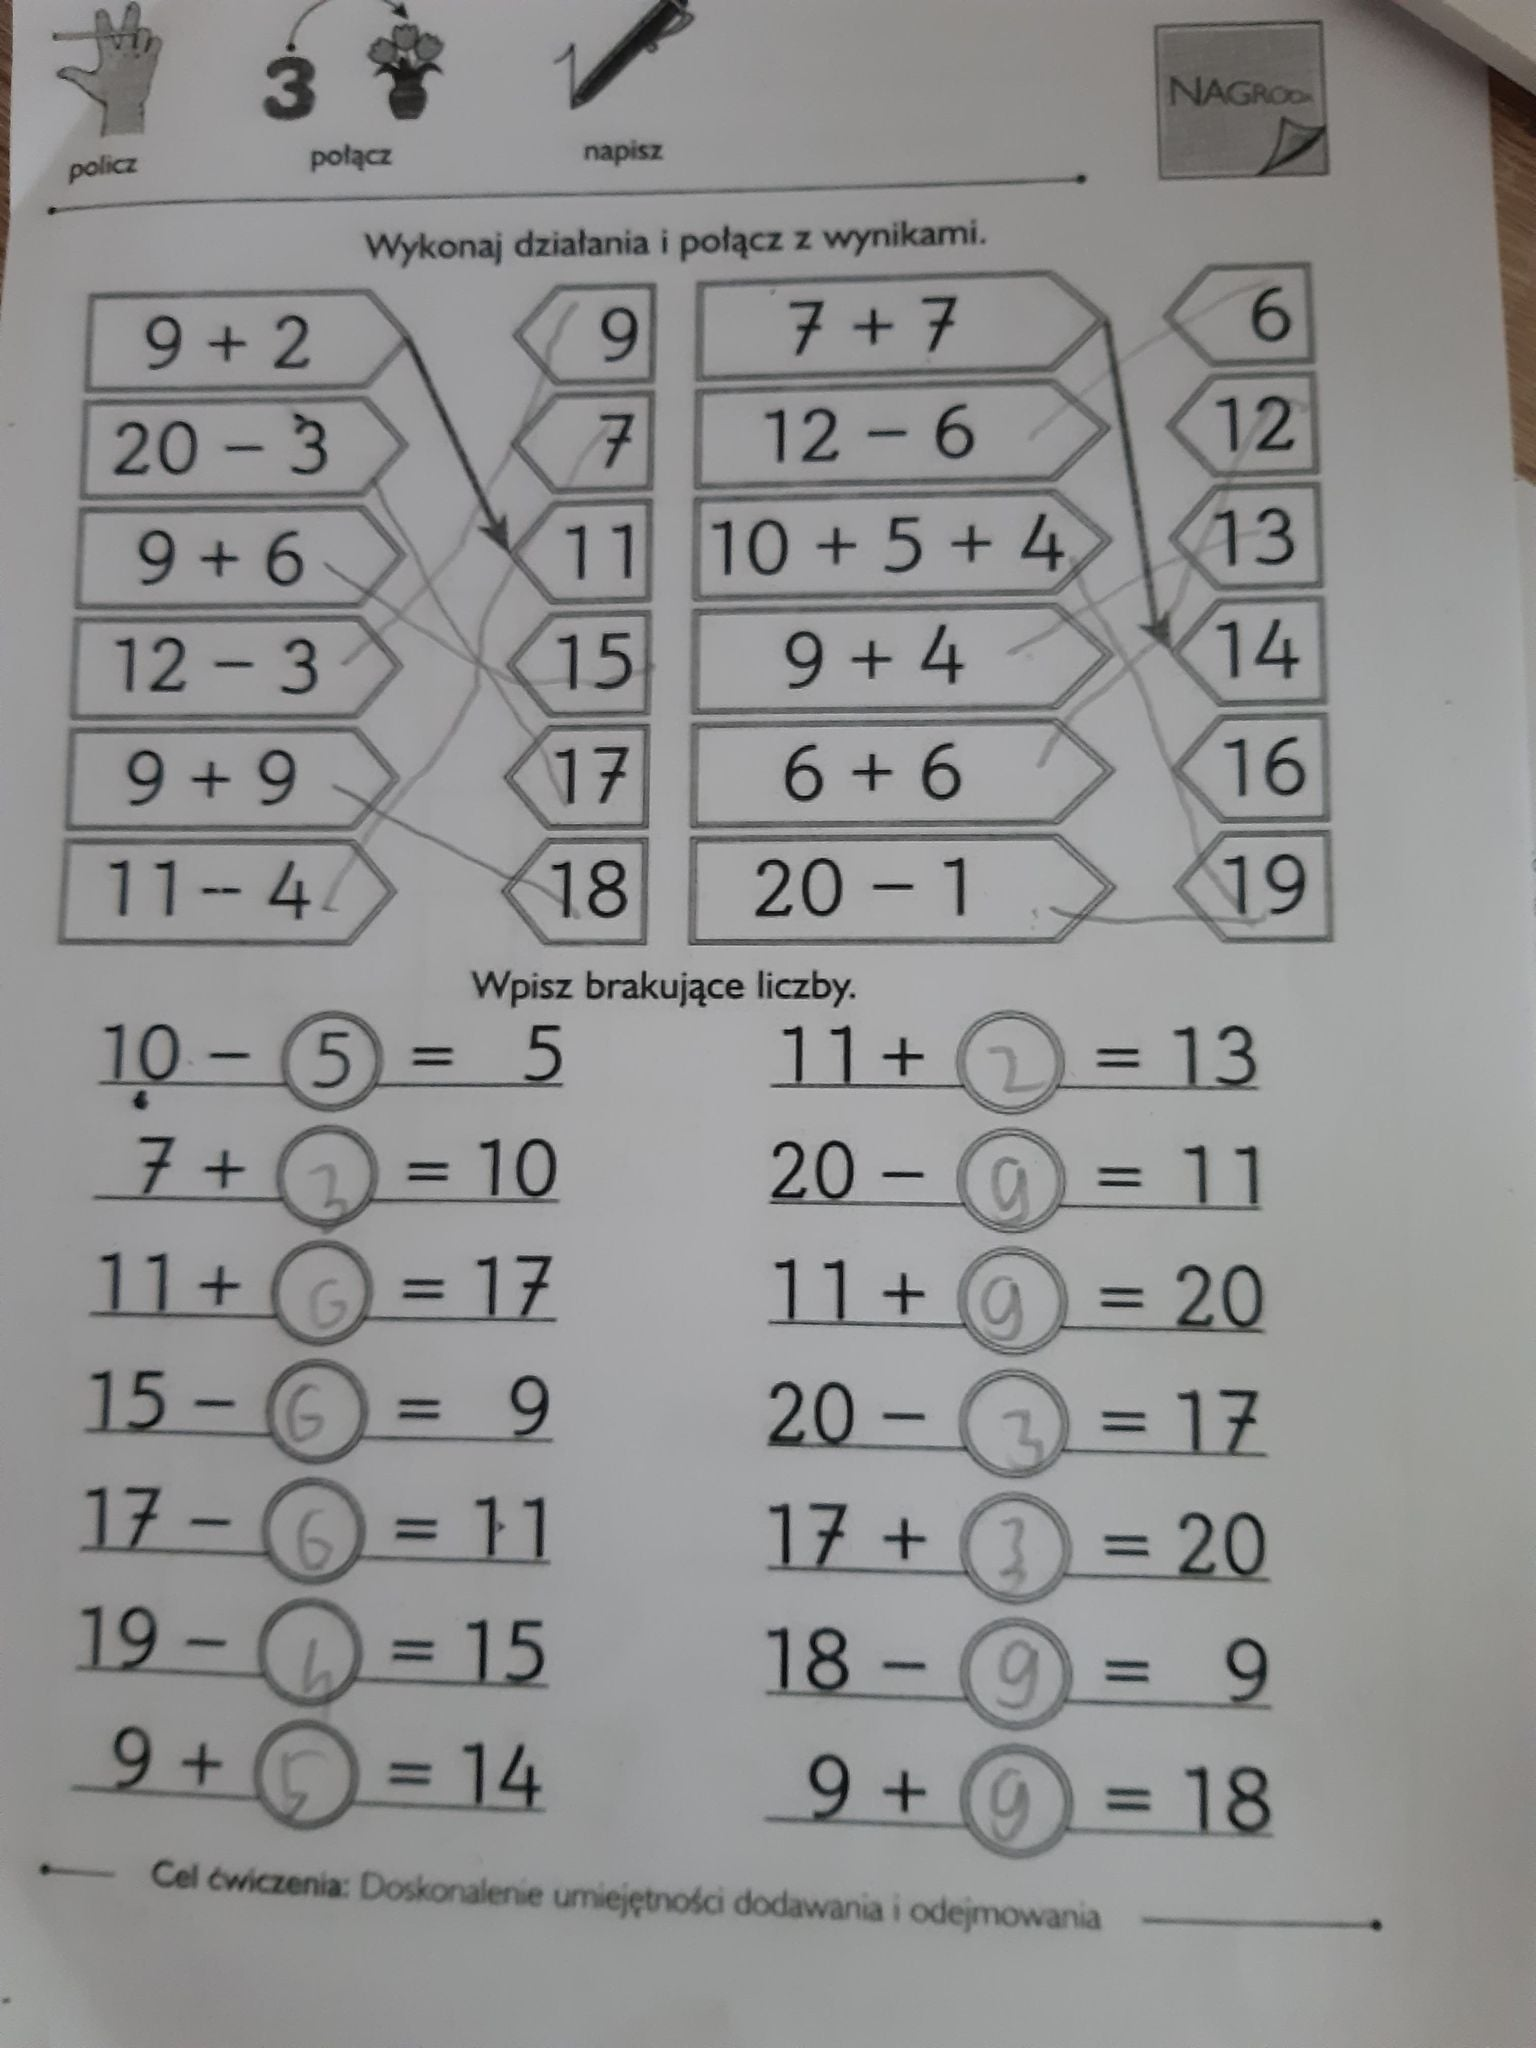 3
policz połącz napisz
NAGRODA
Wykonaj działania i połącz z wynikami.
9 + 2 9 7 + 7 6
20 - 3 7 12 - 6 12
9 + 6 11 10 + 5 + 4 13
12 - 3 15 9 + 4 14
9 + 9 17 6 + 6 16
11 - 4 18 20 - 1 19
Wpisz brakujące liczby.
10 - 5 = 5 11 + 2 = 13
7 + 3 = 10 20 - 9 = 11
11 + 6 = 17 11 + 9 = 20
15 - 6 = 9 20 - 3 = 17
17 - 6 = 11 17 + 3 = 20
19 - 4 = 15 18 - 9 = 9
9 + 5 = 14 9 + 9 = 18
Cel ćwiczenia: Doskonalenie umiejętności dodawania i odejmowania